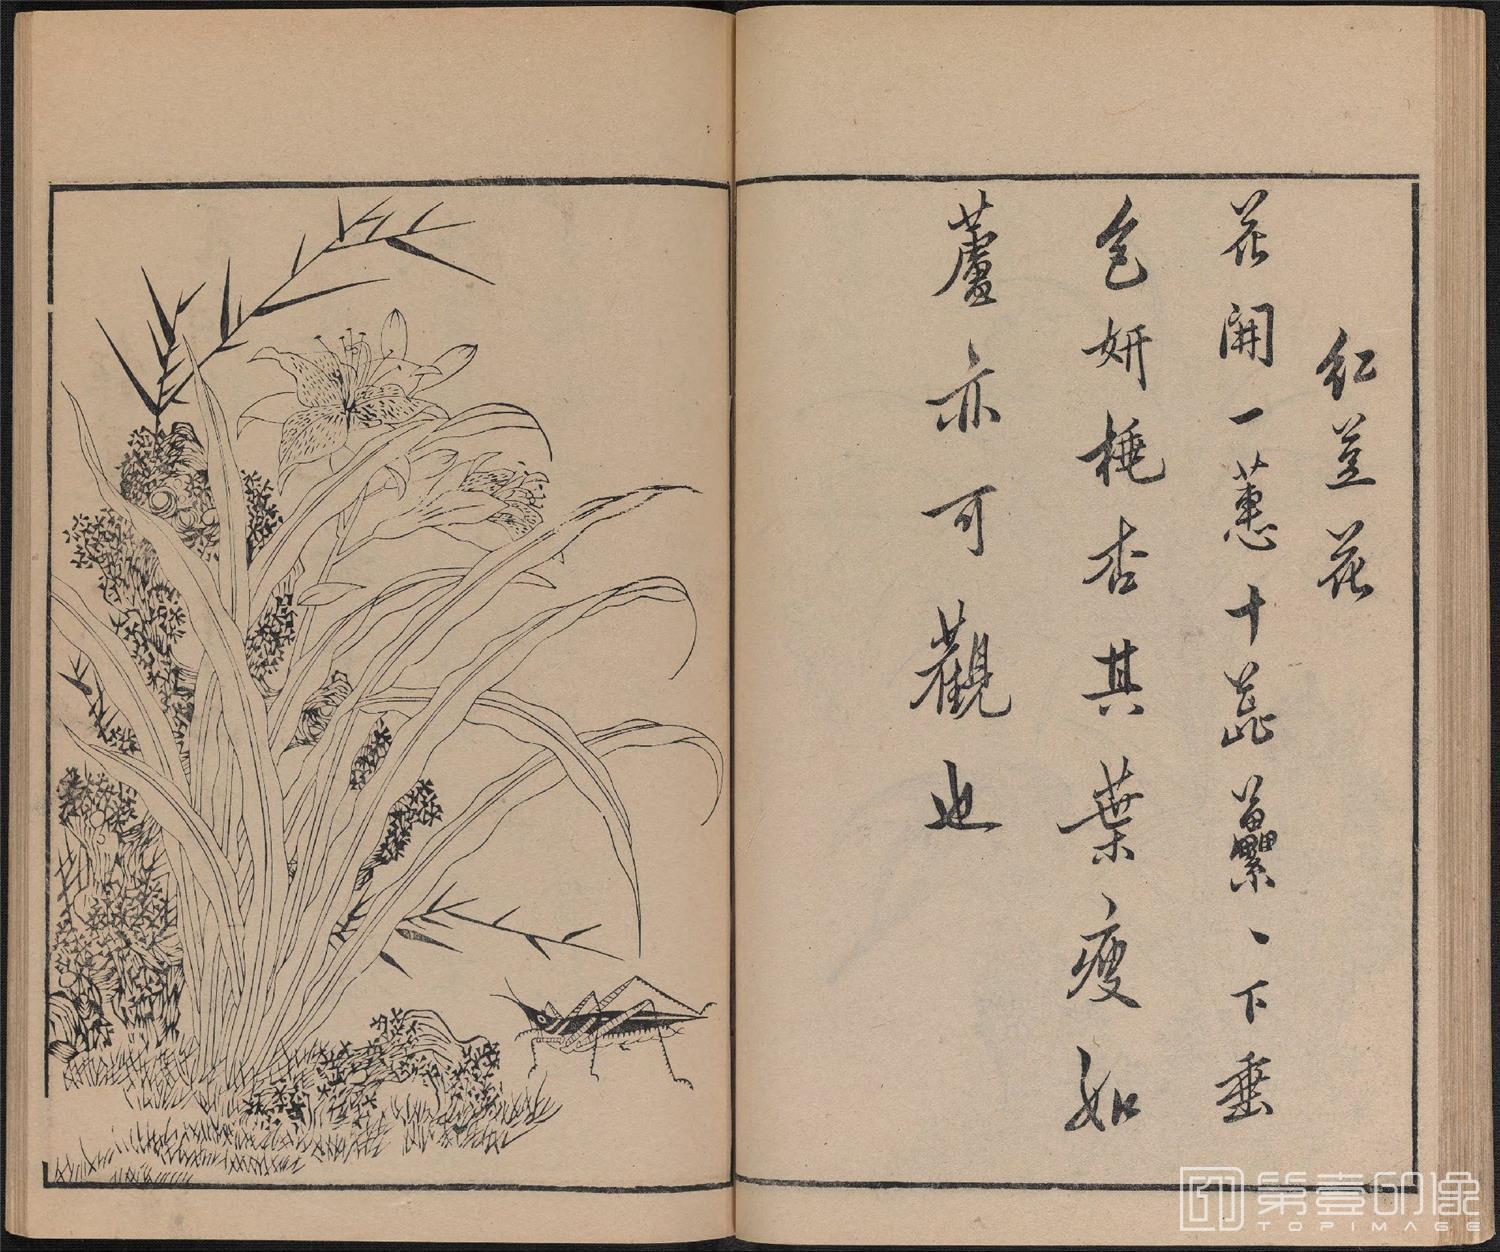 紅荳花
花開一蕙十蕊纍丶下垂
色妍桃杏其葉瘦如
蘆亦可觀也
第壹印像
TOPIMAGE